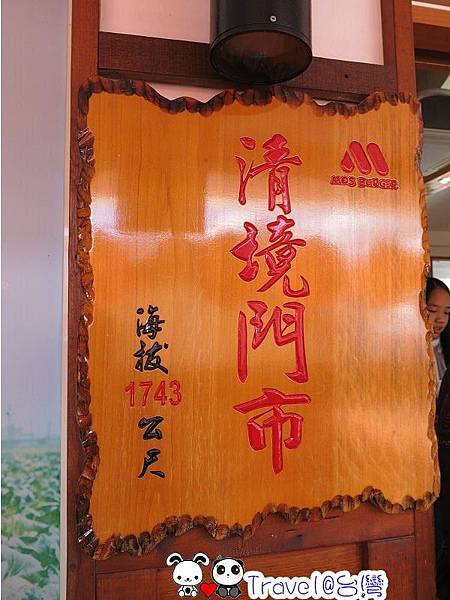 MOS BURGER
清境門市
海拔1743公尺
Travel@台灣